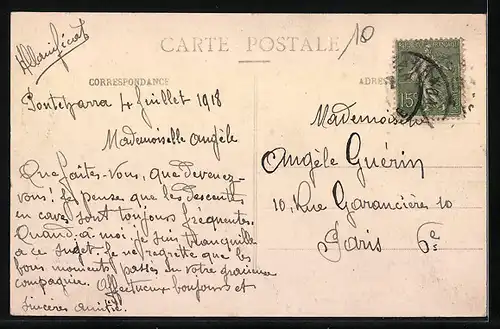 CARTE POSTALE
10
CORRESPONDANCE
Pontcharra 4 Juillet 1918
Mademoiselle Angèle
Que faites-vous, que devenez-
vous! Je pense que les descentes
en cave sont toujours fréquentes.
Quand-à-moi je suis tranquille
à ce sujet. Je ne regrette que les
bons moments passés en votre gracieuse
compagnie. Affectueux bonjours et
sincères amitiés.
15
Mademoiselle
Angèle Guérin
10, Rue Garancières 10
Paris 6e